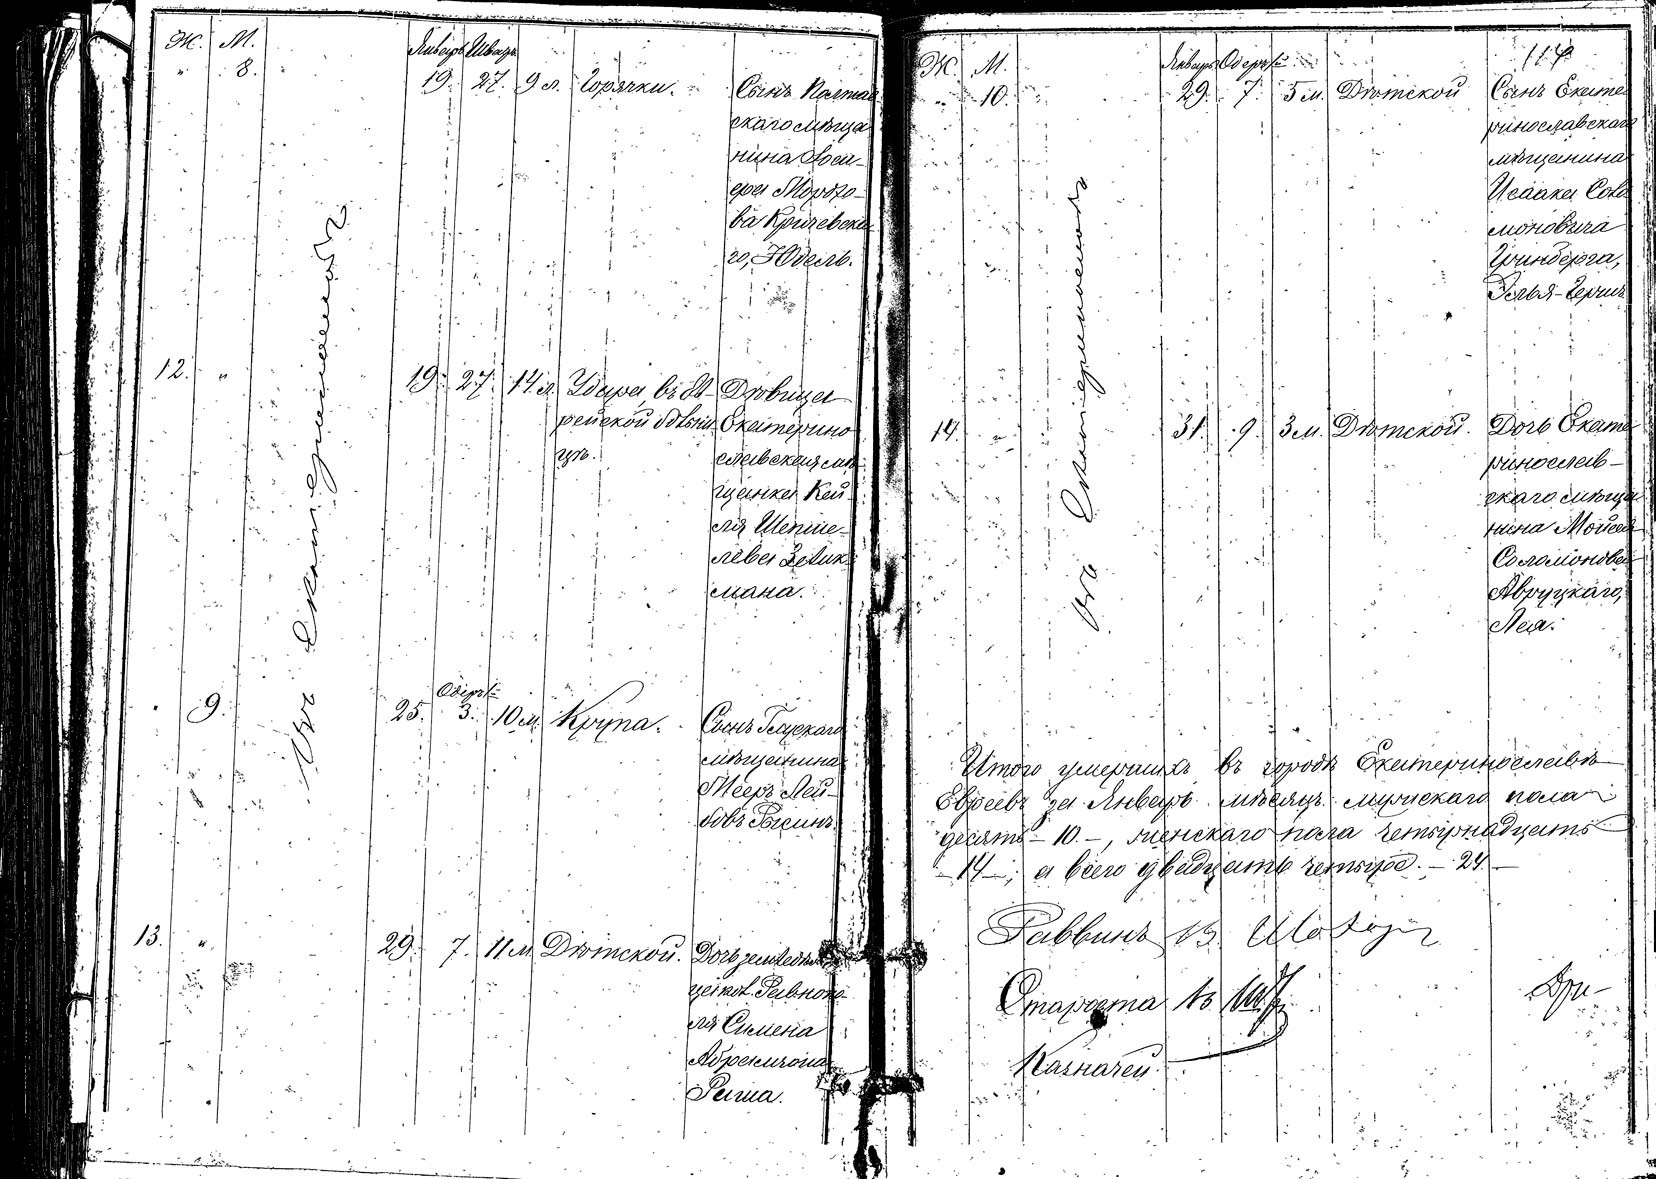 Ж. М. Январь Швать
" 8. 19. 27. 9 л. Горячки. Сынъ Полтав
скаго мѣща
нина Іоси-
фа Мордхо-
ва Кричевска
го, Юдель.
Въ Екатеринославѣ
12. " 19. 27. 14 л. Удара, въ Ев- Дѣвица
рейской больни Екатерино
цѣ. славская мѣ
щанка Кей
ля Шепше-
лева Зелик
мана.
Одеръ
" 9. 25. 3. 10 м. Крупа. Сынъ Глускаго
мѣщанина
Мееръ Лей-
бовъ Рысинъ
13. " 29. 7. 11 м. Дѣтской. Дочь земледѣл
Равнопо-
ля Симена
Абрамчона
Рыша.
114
Ж. М. Январь Одеръ
" 10. 29. 7. 5 м. Дѣтской Сынъ Екате
ринославскаго
мѣщанина
Исаака Соло
моновича
Гринберга,
Эльья-Герша
Въ Екатеринославѣ
14. " 31. 9. 3 м. Дѣтской. Дочь Екате
ринослав-
скаго мѣща
нина Мойсея
Соломонова
Авруцкаго,
Лея.
Итого умершихъ въ городѣ Екатеринославѣ
Евреевъ за Январь мѣсяцъ мужскаго пола
десять - 10. -, женскаго пола четырнадцать
- 14 -; а всего двадцать четыре. - 24. -
Раввинъ В. Шаказ
Староста
Казначей